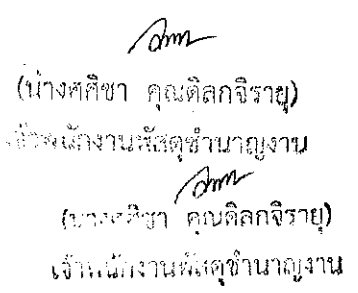 (นางศศิชา คุณดิลกจิรายุ)
เจ้าพนักงานพัสดุชำนาญงาน
(นางศศิชา คุณดิลกจิรายุ)
เจ้าพนักงานพัสดุชำนาญงาน